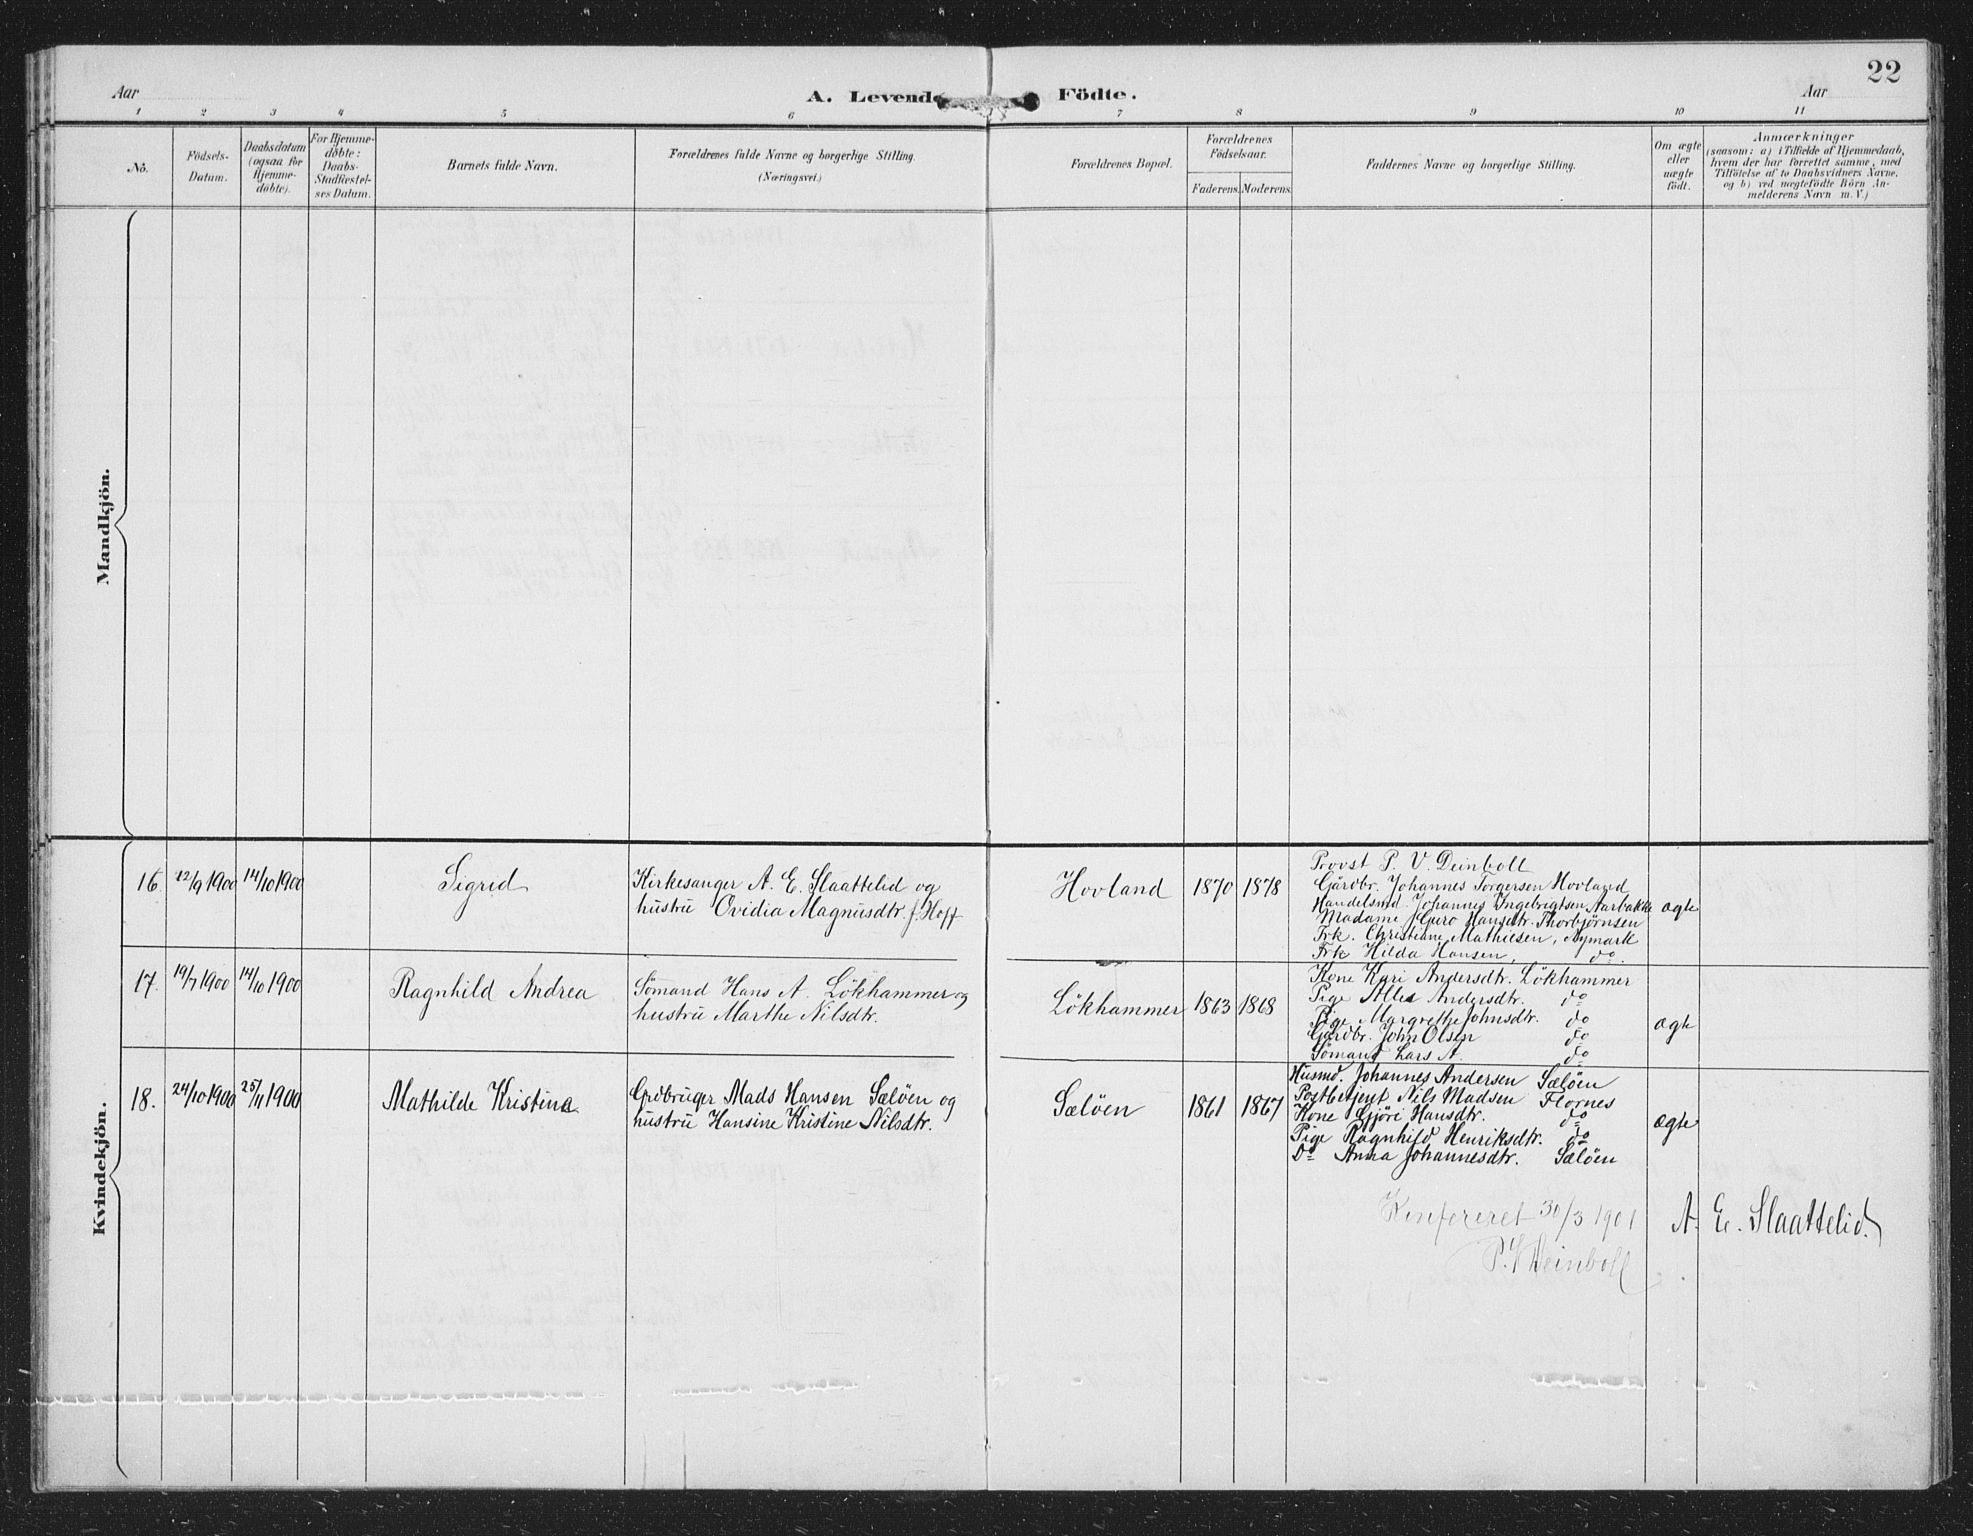 22
Aar
A. Levende Födte.
Aar
1 2 3 4 5 6 7 8 9 10 11
No.
Födsels-
Datum.
Daabsdatum
(ogsaa for
Hjemme-
döbte).
For Hjemme-
döbte:
Daabs-
Stadfæstel-
ses Datum.
Barnets fulde Navn.
Forældrenes fulde Navne og borgerlige Stilling.
(Næringsvei.)
Forældrenes Bopæl.
Forældrenes
Födselsaar.
Faderens. Moderens.
Faddernes Navne og borgerlige Stilling.
Om ægte
eller
uægte
født.
Anmærkninger
(saasom: a) i Tilfælde af Hjemmedaab,
hvem der har forrettet samme, med
Tilföielse af to Daabsvidners Navne,
og b) ved uægtefödte Börn An-
melderens Navn m. V.)
Mandkjön.
Kvindekjön.
16. 12/9 1900 14/10 1900
Sigrid
Kirkesanger A. E. Slaattelid og
hustru Ovidia Magnusdtr. f. Hoff
Hovland 1870 1878
Provst P. V. Deinboll
Gårdbr. Johannes Torgersen Hovland
Handelsmd. Johannes Ingebrigtsen Aarbakke
Madame Guro Hansdtr. Thorbjørnsen
Frk. Christiane Mathiesen, Nymark
Frk Hilda Hansen, do
ægte
17. 19/7 1900 14/10 1900
Ragnhild Andrea
Sømand Hans A. Lökhammer og
hustru Marthe Nilsdtr.
Lökhammer 1863 1868
Kone Kari Andersdtr. Lökhammer
Pige Alles Andersdtr. do
Pige Margrethe Johnsdtr. do
Gårdbr. John Olsen do
Sømand Lars A. do
ægte
18. 24/10 1900 25/11 1900
Mathilde Kristina
Grdbruger Mads Hansen Sæløen og
hustru Hansine Kristine Nilsdtr.
Sæløen 1861 1867
Husmd. Johannes Andersen Sæløen
Postbetjent Nils Madsen Flornes
Kone Gjøri Hansdtr. do
Pige Ragnhild Henriksdtr. do
Do Anna Johannesdtr. Sæløen
ægte
Konfereret 30/3 1901
A. E. Slaattelid.
P. V. Deinboll